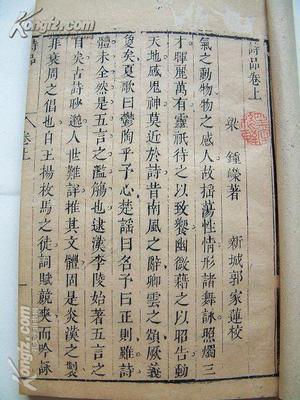 詩品卷上
梁 鍾嶸著 新城郭家蓮校
氣之動物物之感人故揺蕩性情形諸舞詠照燭三
才暉麗萬有靈祇待之以致饗幽微藉之以昭告動
天地感鬼神莫近於詩昔南風之辭卿雲之頌厥義
敻矣夏歌曰鬱陶乎予心楚謡曰名予曰正則雖詩
體未全然是五言之濫觴也逮漢李陵始著五言之
目矣古詩眇邈人世難詳推其文體固是炎漢之製
非衰周之倡也自王揚枚馬之徒詞賦競爽而吟詠
詩品 卷上